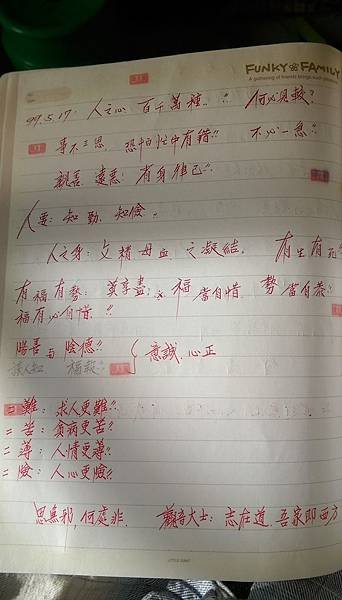 FUNKY FAMILY
A gathering of friends brings such
99.5.17. 人之心 百千萬種.〃 何必見較?
事不三思 恐怕忙中有錯〃 不必一忽〃
親善 遠惡: 有身律己〃
人要 知勤. 知儉.
人之身: 父精 母血 之凝結. 有生有死〃
有福有勢: 莫享盡; 福 當自惜 勢 當自恭〃
福有必自惜 〃
陽善 与 陰德〃 { 意誠. 心正
讓人知. 福報
二難: 求人更難〃
二苦: 貧病更苦〃
二薄: 人情更薄〃
二險: 人心更險〃
思無邪, 何處非. 觀音大士: 志在道, 吾家即西方